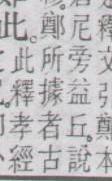 釋文引鄭本
尼旁益丘說
鄭所據者古
此釋孝經
此